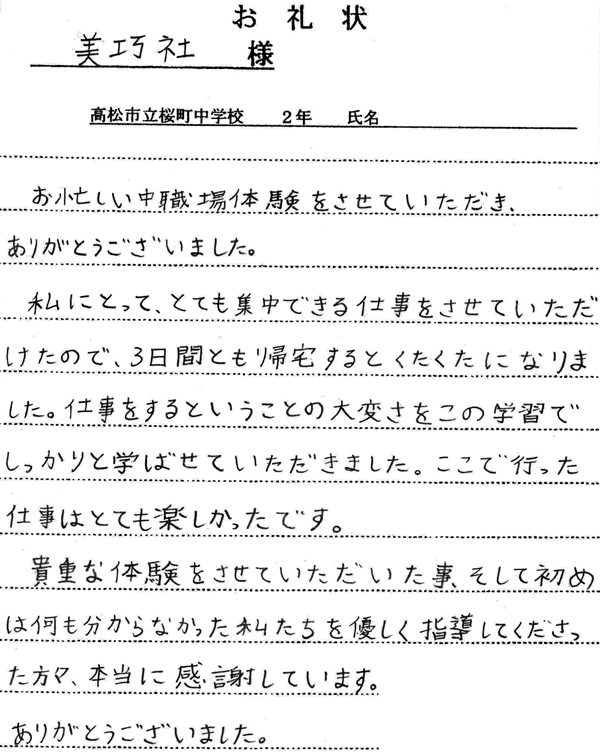 お礼状
美巧社 様
高松市立桜町中学校 2年 氏名
お忙しい中職場体験をさせていただき、
ありがとうございました。
私にとって、とても集中できる仕事をさせていただ
けたので、3日間とも帰宅するとくたくたになりま
した。仕事をするということの大変さをこの学習で
しっかりと学ばせていただきました。ここで行った
仕事はとても楽しかったです。
貴重な体験をさせていただいた事、そして初め
は何も分からなかった私たちを優しく指導してくださっ
た方々、本当に感謝しています。
ありがとうございました。